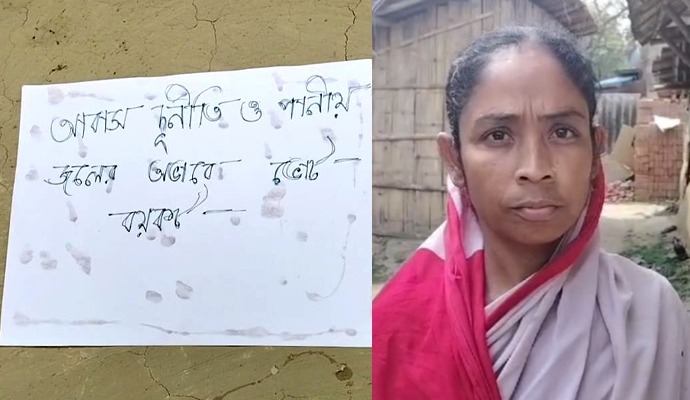 আবাস দুর্নীতি ও পানীয়
জলের অভাবে ভোট –
বয়কট –